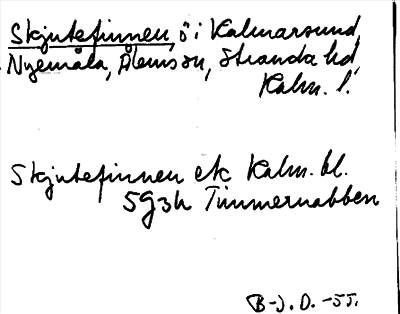 Skjutefinnen, ö i Kalmarsund,
Nyemåla, Ålems sn, Stranda hd,
Kalm. l.
Skjutefinnen ek Kalm. bl.
5g3h Timmernabben
B-J. D. -55.